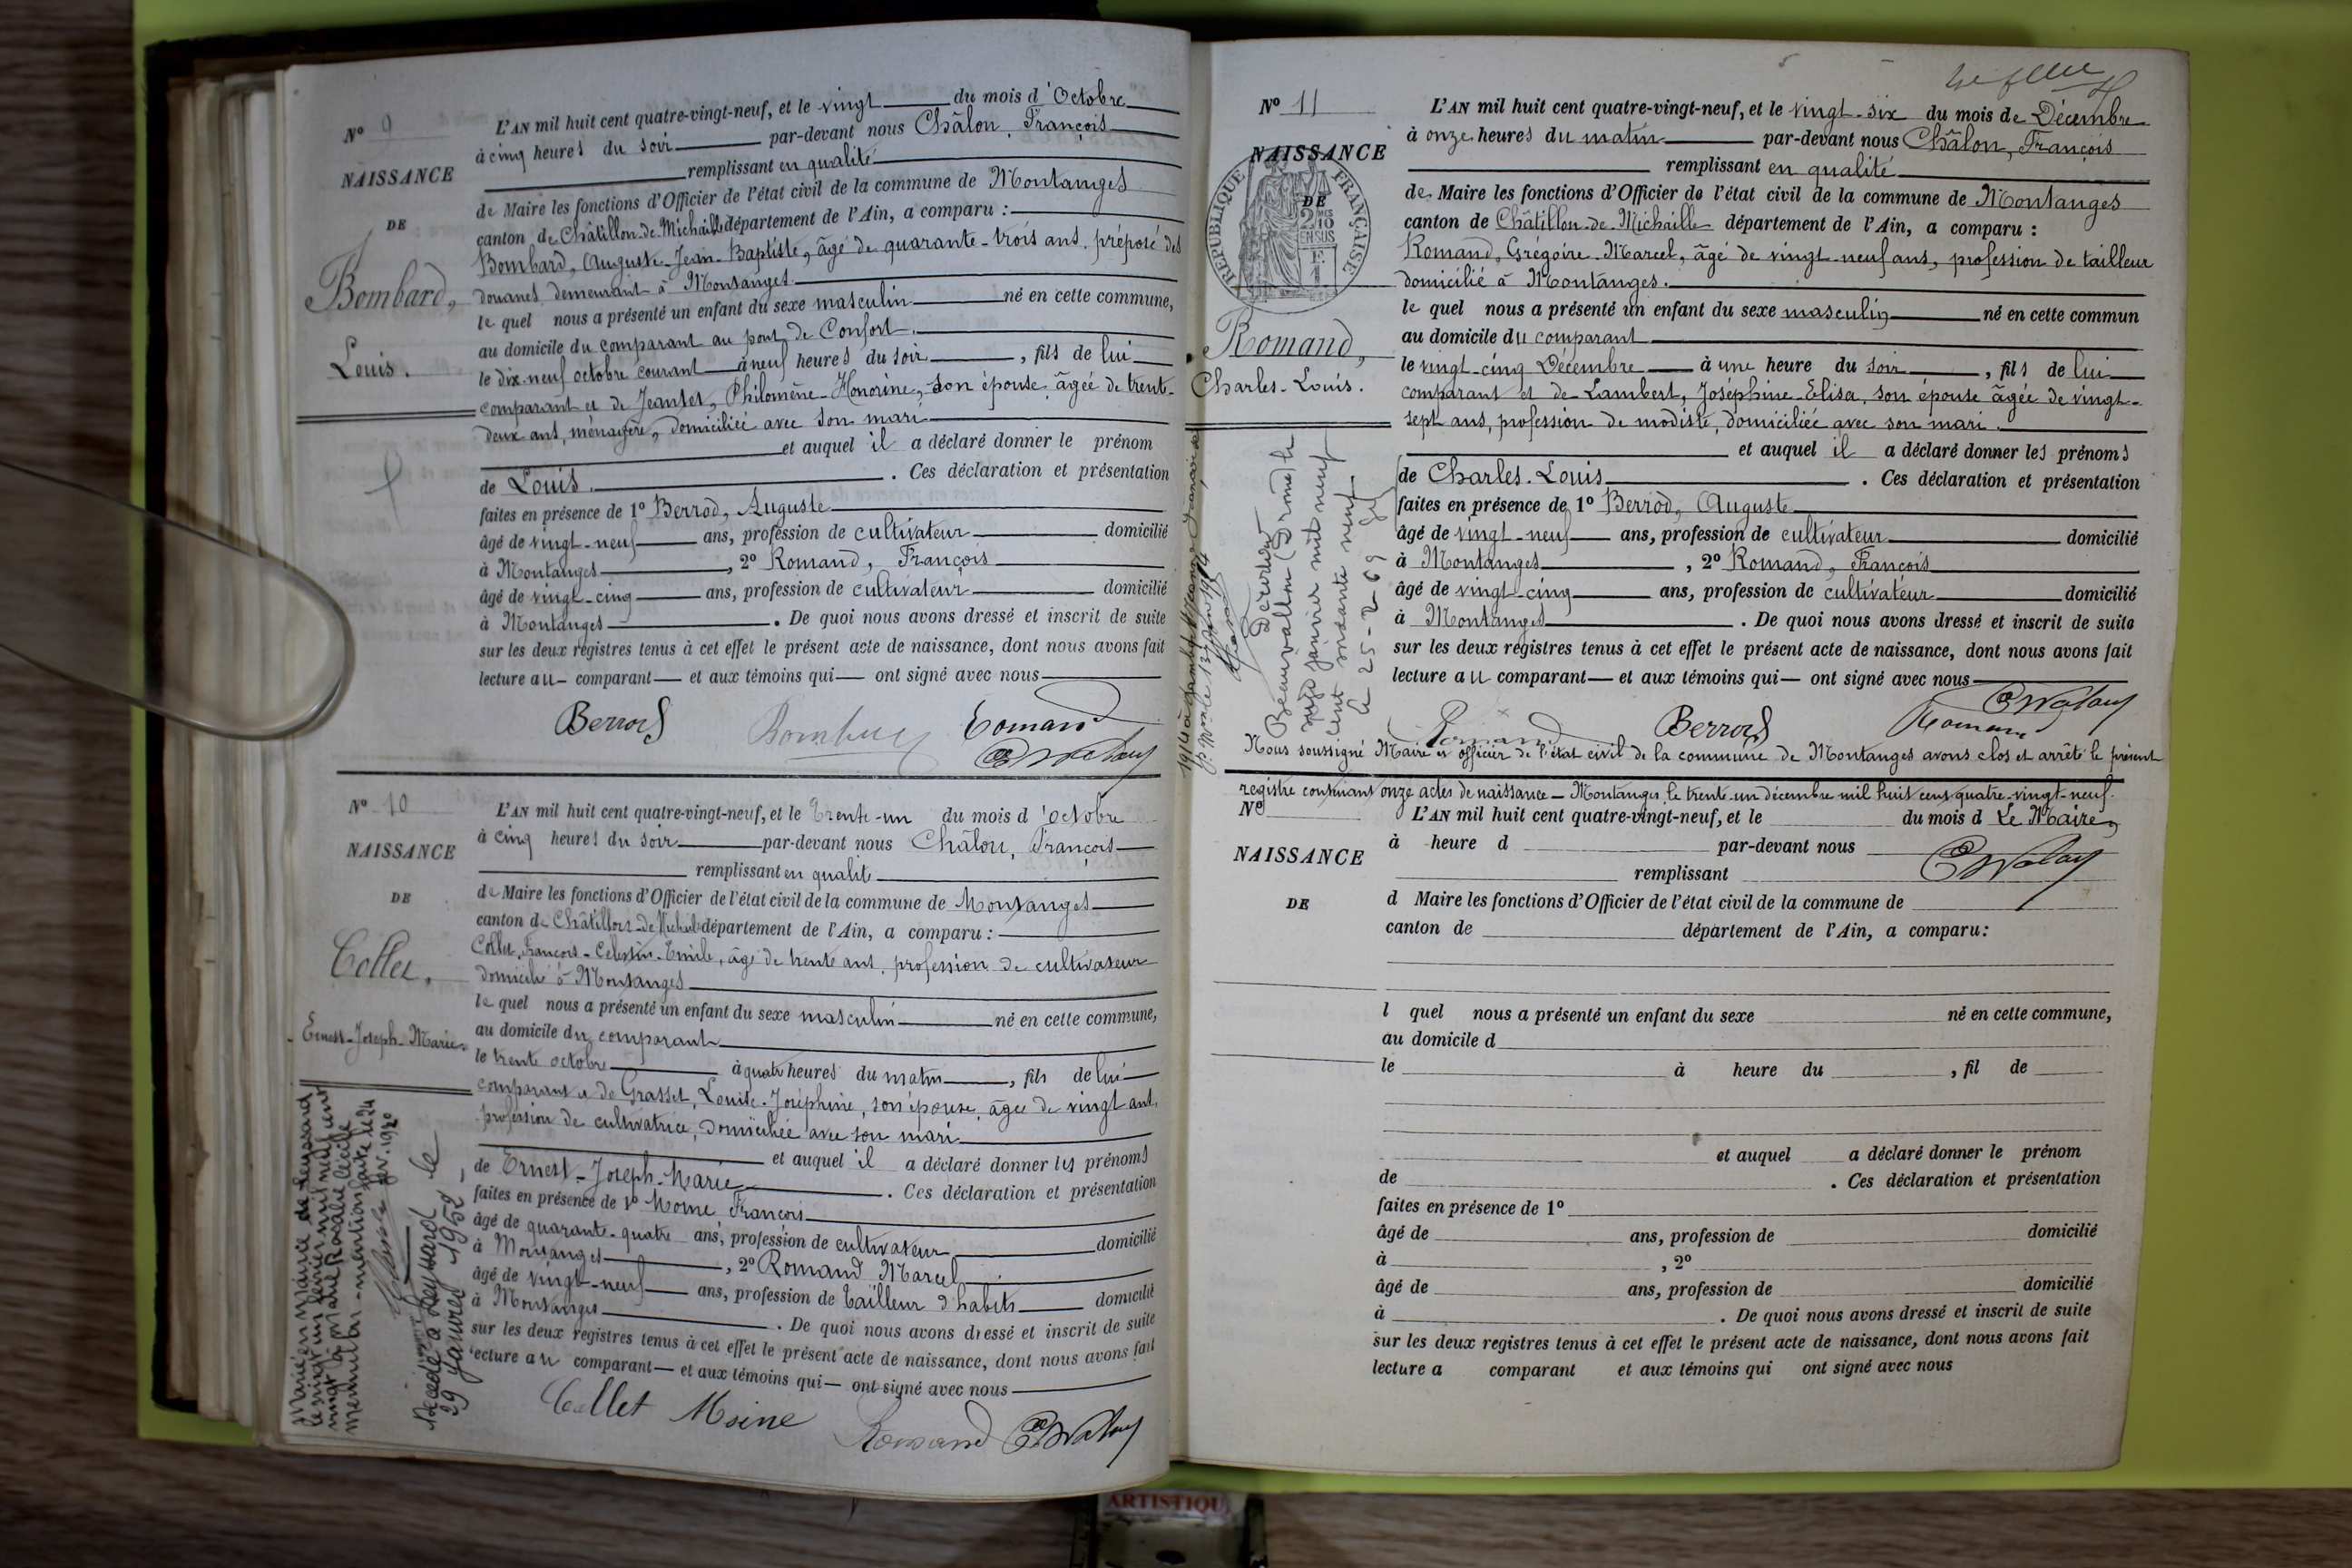 Nº 9
NAISSANCE
DE
Bombard,
Louis.
L'AN mil huit cent quatre-vingt-neuf, et le vingt du mois d'Octobre
à cinq heures du soir par-devant nous Châlon, François
remplissant en qualité
de Maire les fonctions d'Officier de l'état civil de la commune de Montanges
canton de Châtillon-de-Michaille département de l'Ain, a comparu :
Bombard, Auguste-Jean-Baptiste, âgé de quarante-trois ans, préposé des
douanes demeurant à Montanges.
le quel nous a présenté un enfant du sexe masculin né en cette commune,
au domicile du comparant au pont de Confort.
le dix-neuf octobre courant à neuf heures du soir, fils de lui
comparant et de Jeantet, Philomène-Honorine, son épouse, âgée de trente-
deux ans, ménagère, domiciliée avec son mari
et auquel il a déclaré donner le prénom
de Louis. Ces déclaration et présentation
faites en présence de 1º Berrod, Auguste
âgé de vingt-neuf ans, profession de cultivateur domicilié
à Montanges, 2º Romand, François
âgé de vingt-cinq ans, profession de cultivateur domicilié
à Montanges. De quoi nous avons dressé et inscrit de suite
sur les deux registres tenus à cet effet le présent acte de naissance, dont nous avons fait
lecture au comparant et aux témoins qui ont signé avec nous
Berrod Romand
Nº 10
NAISSANCE
DE
Collet,
Ernest-Joseph-Marie
L'AN mil huit cent quatre-vingt-neuf, et le trente-un du mois d'octobre
à cinq heures du soir par-devant nous Châlon, François
remplissant en qualité
de Maire les fonctions d'Officier de l'état civil de la commune de Montanges
canton de Châtillon-de-Michaille département de l'Ain, a comparu :
Collet, François-Célestin-Emile, âgé de trente ans, profession de cultivateur
domicilié à Montanges
le quel nous a présenté un enfant du sexe masculin né en cette commune,
au domicile du comparant
le trente octobre à quatre heures du matin, fils de lui
comparant et de Grasset, Louise-Joséphine, son épouse, âgée de vingt ans,
profession de cultivatrice, domiciliée avec son mari
et auquel il a déclaré donner les prénoms
de Ernest-Joseph-Marie. Ces déclaration et présentation
faites en présence de 1º Moine François
âgé de quarante-quatre ans, profession de cultivateur domicilié
à Montanges, 2º Romand Marcel
âgé de vingt-neuf ans, profession de tailleur d'habits domicilié
à Montanges. De quoi nous avons dressé et inscrit de suite
sur les deux registres tenus à cet effet le présent acte de naissance, dont nous avons fait
lecture au comparant et aux témoins qui ont signé avec nous
Collet Moine Romand
Décédé à Leyssard le
29 Janvier 1952
Nº 11
NAISSANCE
DE
RÉPUBLIQUE FRANÇAISE
Romand,
Charles-Louis.
L'AN mil huit cent quatre-vingt-neuf, et le vingt-six du mois de Décembre
à onze heures du matin par-devant nous Châlon, François
remplissant en qualité
de Maire les fonctions d'Officier de l'état civil de la commune de Montanges
canton de Châtillon-de-Michaille département de l'Ain, a comparu :
Romand, Grégoire-Marcel, âgé de vingt-neuf ans, profession de tailleur
domicilié à Montanges.
le quel nous a présenté un enfant du sexe masculin né en cette commun
au domicile du comparant
le vingt-cinq Décembre à une heure du soir, fils de lui
comparant et de Lambert, Joséphine-Elisa, son épouse âgée de vingt-
sept ans, profession de modiste, domiciliée avec son mari.
et auquel il a déclaré donner les prénoms
de Charles-Louis. Ces déclaration et présentation
faites en présence de 1º Berrod, Auguste
âgé de vingt-neuf ans, profession de cultivateur domicilié
à Montanges, 2º Romand, François
âgé de vingt-cinq ans, profession de cultivateur domicilié
à Montanges. De quoi nous avons dressé et inscrit de suite
sur les deux registres tenus à cet effet le présent acte de naissance, dont nous avons fait
lecture au comparant et aux témoins qui ont signé avec nous
Romand Berrod Romand
Beauvallon (Drôme) le
janvier mil neuf
cent soixante neuf
le 25-2-69
Nous soussigné Maire et officier de l'état civil de la commune de Montanges avons clos et arrêté le présent
registre contenant onze actes de naissance - Montanges, le trente-un décembre mil huit cent quatre-vingt-neuf.
Nº
NAISSANCE
DE
L'AN mil huit cent quatre-vingt-neuf, et le du mois d Le Maire,
à heure d par-devant nous
remplissant
d Maire les fonctions d'Officier de l'état civil de la commune de
canton de département de l'Ain, a comparu:
l quel nous a présenté un enfant du sexe né en cette commune,
au domicile d
le à heure du , fil de
et auquel a déclaré donner le prénom
de . Ces déclaration et présentation
faites en présence de 1º
âgé de ans, profession de domicilié
à , 2º
âgé de ans, profession de domicilié
à . De quoi nous avons dressé et inscrit de suite
sur les deux registres tenus à cet effet le présent acte de naissance, dont nous avons fait
lecture a comparant et aux témoins qui ont signé avec nous
ARTISTIQU